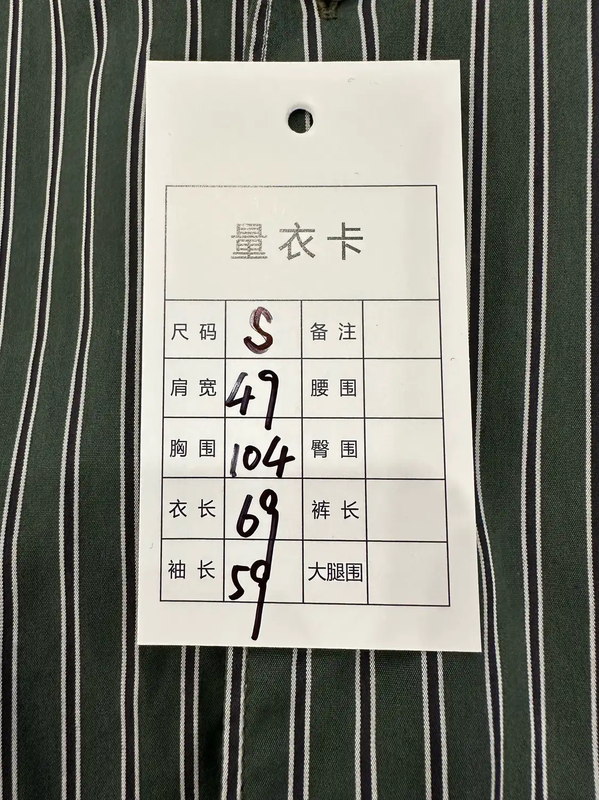 量衣卡
尺码 S 备注
肩宽 49 腰围
胸围 104 臀围
衣长 69 裤长
袖长 59 大腿围